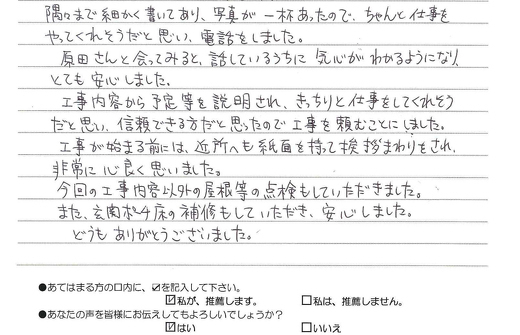 隅々まで細かく書いてあり、写真が一杯あったので、ちゃんと仕事を
やってくれそうだと思い、電話をしました。
原田さんと会ってみると、話しているうちに気心がわかるようになり、
とても安心しました。
工事内容から予定等を説明され、きっちりと仕事をしてくれそう
だと思い、信頼できる方だと思ったので工事を頼むことにしました。
工事が始まる前には、近所へも紙面を持って挨拶まわりをされ、
非常に心良く思いました。
今回の工事内容以外の屋根等の点検もしていただきました。
また、玄関床の補修もしていただき、安心しました。
どうもありがとうございました。
●あてはまる方の口内に、☑を記入して下さい。
☑私が、推薦します。 □私は、推薦しません。
●あなたの声を皆様にお伝えしてもよろしいでしょうか？
☑はい □いいえ